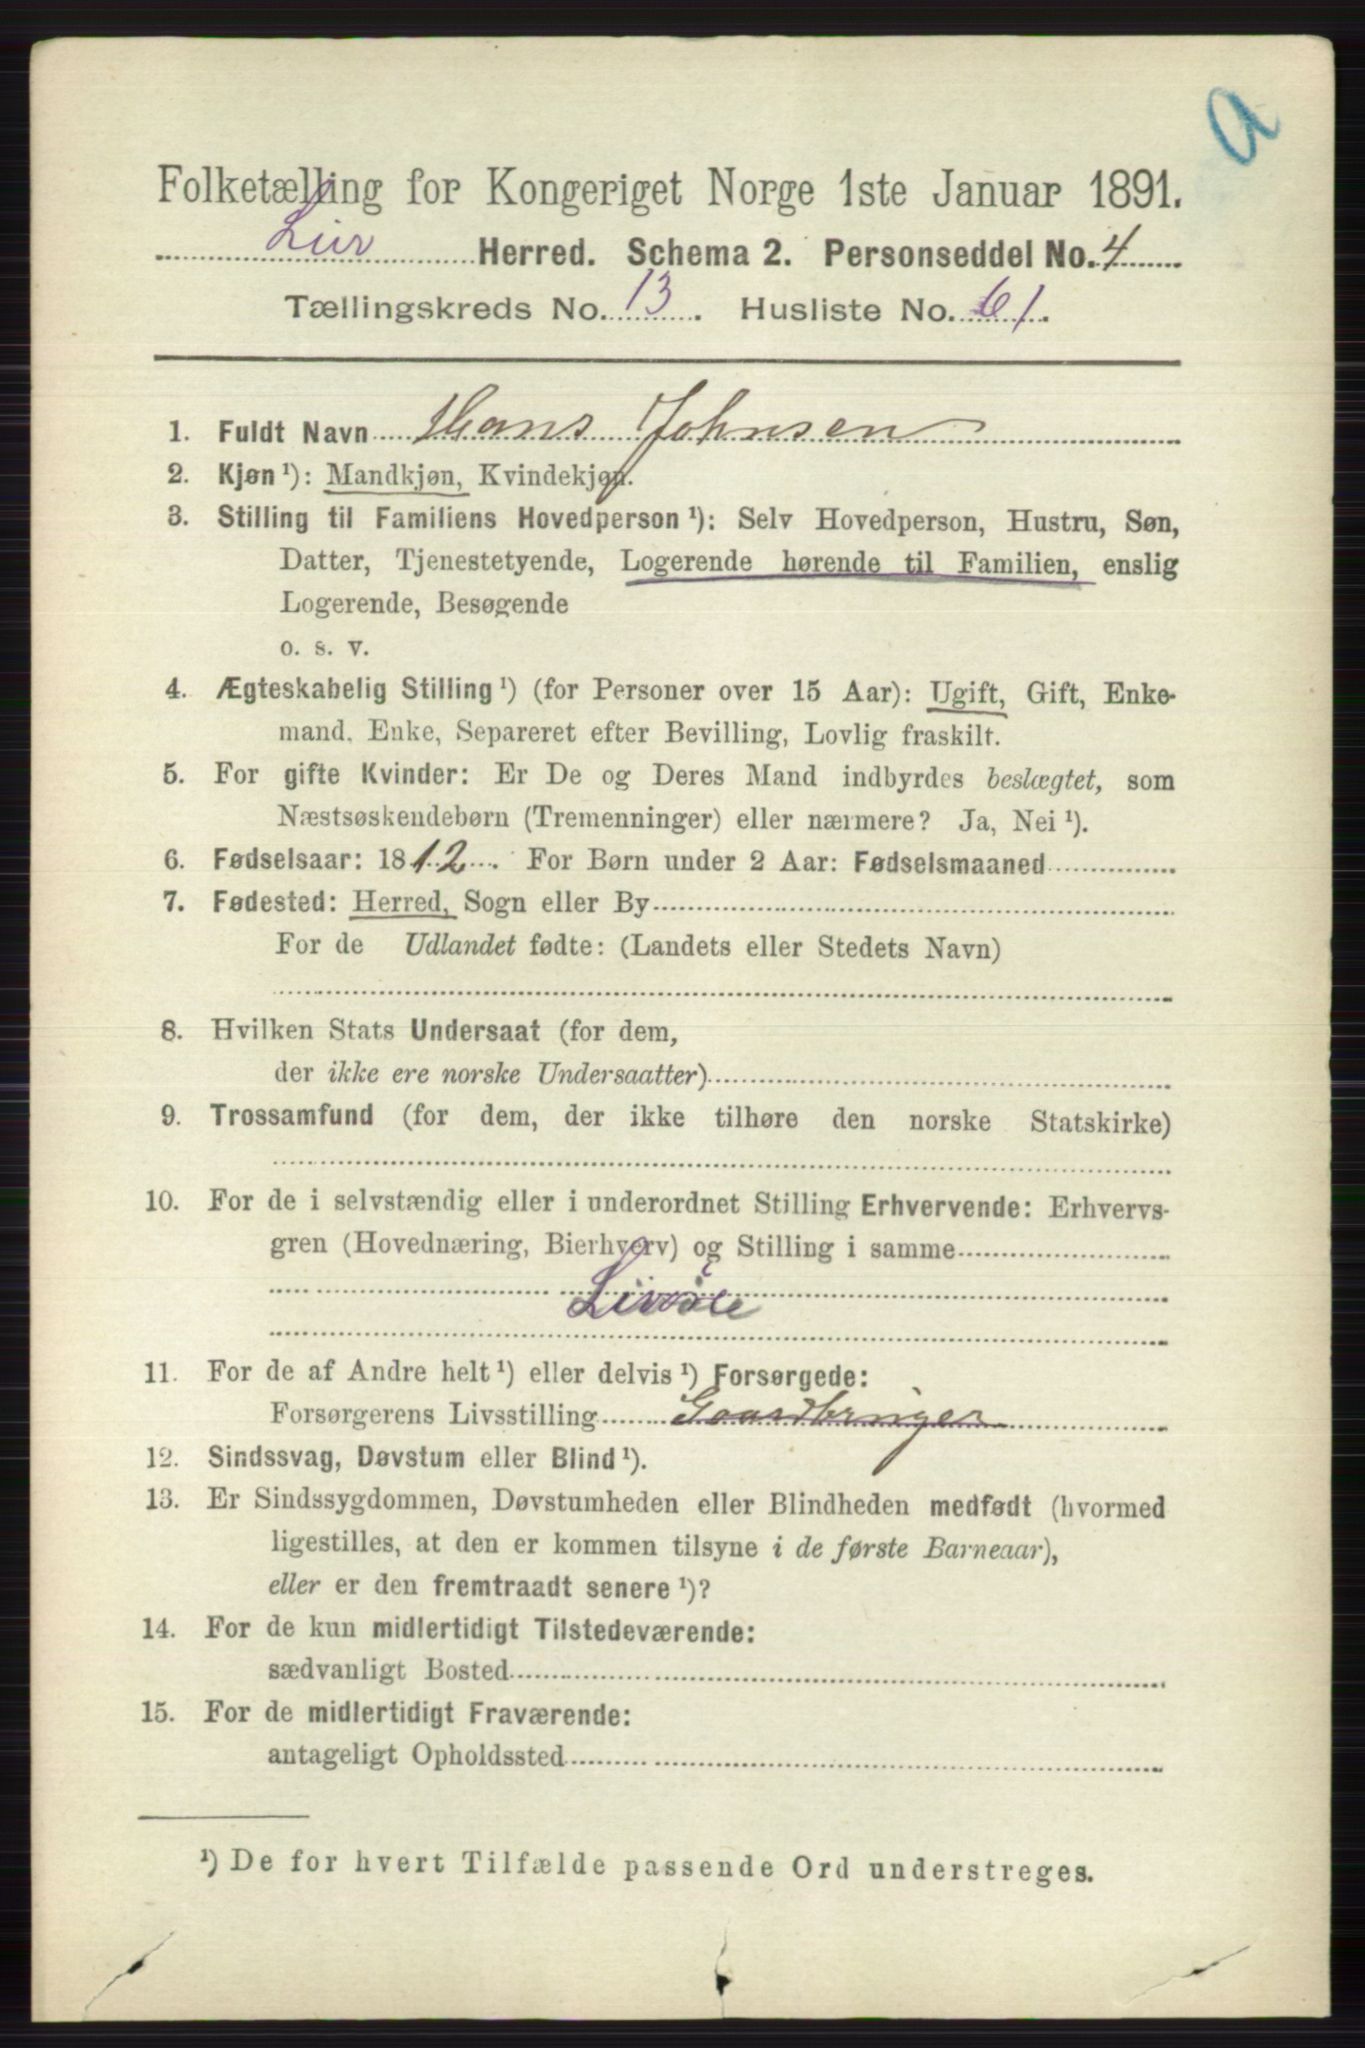 a
Folketælling for Kongeriget Norge 1ste Januar 1891.
Lier Herred. Schema 2. Personseddel No. 4
Tællingskreds No. 13. Husliste No. 61.
1. Fuldt Navn Hans Johnsen
2. Kjøn ¹): Mandkjøn, Kvindekjøn.
3. Stilling til Familiens Hovedperson ¹): Selv Hovedperson, Hustru, Søn,
Datter, Tjenestetyende, Logerende hørende til Familien, enslig
Logerende, Besøgende
o. s. v.
4. Ægteskabelig Stilling ¹) (for Personer over 15 Aar): Ugift, Gift, Enke-
mand, Enke, Separeret efter Bevilling, Lovlig fraskilt.
5. For gifte Kvinder: Er De og Deres Mand indbyrdes beslægtet, som
Næstsøskendebørn (Tremenninger) eller nærmere? Ja, Nei ¹).
6. Fødselsaar: 1812. For Børn under 2 Aar: Fødselsmaaned
7. Fødested: Herred, Sogn eller By
For de Udlandet fødte: (Landets eller Stedets Navn)
8. Hvilken Stats Undersaat (for dem,
der ikke ere norske Undersaatter)
9. Trossamfund (for dem, der ikke tilhøre den norske Statskirke)
10. For de i selvstændig eller i underordnet Stilling Erhvervende: Erhvervs-
gren (Hovednæring, Bierhverv) og Stilling i samme
11. For de af Andre helt ¹) eller delvis ¹) Forsørgede:
Forsørgerens Livsstilling Gaardbruger
12. Sindssvag, Døvstum eller Blind ¹).
13. Er Sindssygdommen, Døvstumheden eller Blindheden medfødt (hvormed
ligestilles, at den er kommen tilsyne i de første Barneaar),
eller er den fremtraadt senere ¹)?
14. For de kun midlertidigt Tilstedeværende:
sædvanligt Bosted
15. For de midlertidigt Fraværende:
antageligt Opholdssted
¹) De for hvert Tilfælde passende Ord understreges.